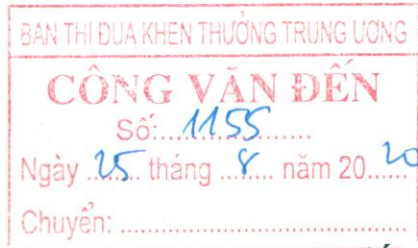 BAN THI ĐUA KHEN THƯỞNG TRUNG ƯƠNG
CÔNG VĂN ĐẾN
Số:....1155..................
Ngày ..25.. tháng ..8.. năm 20..20
Chuyển: ......................................